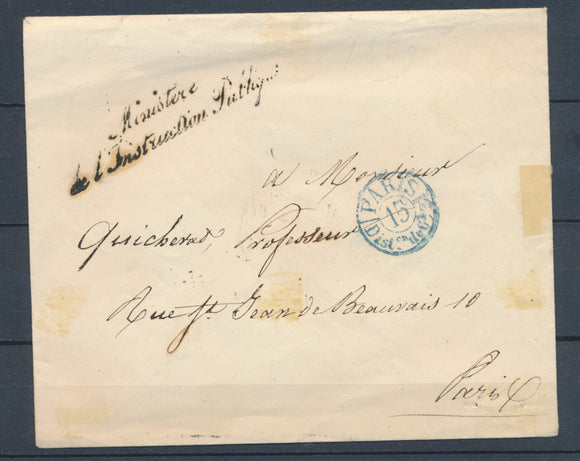 Ministere
de l'Instruction Publique
à Monsieur
Quicherat, Professeur
PARIS
15
Rue St Jean de Beauvais 10
Paris